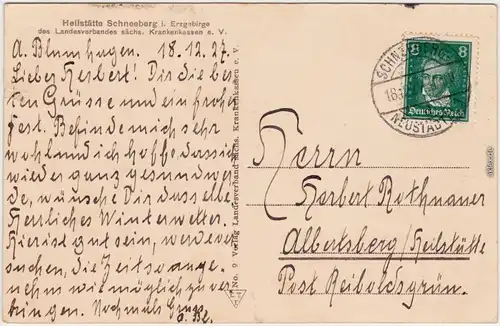 Heilstätte Schneeberg i. Erzgebirge
des Landesverbandes sächs. Krankenkassen e. V.
A. Blumhagen. 18.12.27.
Lieber Herbert! Dir die be-
ten Grüsse und ein froh
Fest. Befinde mich sehr
wohl und ich hoffe, dass Du
wieder ganz gesund wer-
de, wünsche Dir dasselbe
Herrliches Winterwetter,
Hier ist gut sein, werde ver-
suchen, die Zeit so ange-
nehm wie möglich zu ver-
bringen. Nochmals Gruss
E. Bl.
No. 9 Verlag Landesverband Sächs. Krankenkassen e. V.
SCHNEEBERG
18.
NEUSTÄDTEL
8 8
Deutsches Reich
Herrn
Herbert Rothnauer
Albertsberg/Heilstätte
Post Reiboldsgrün.